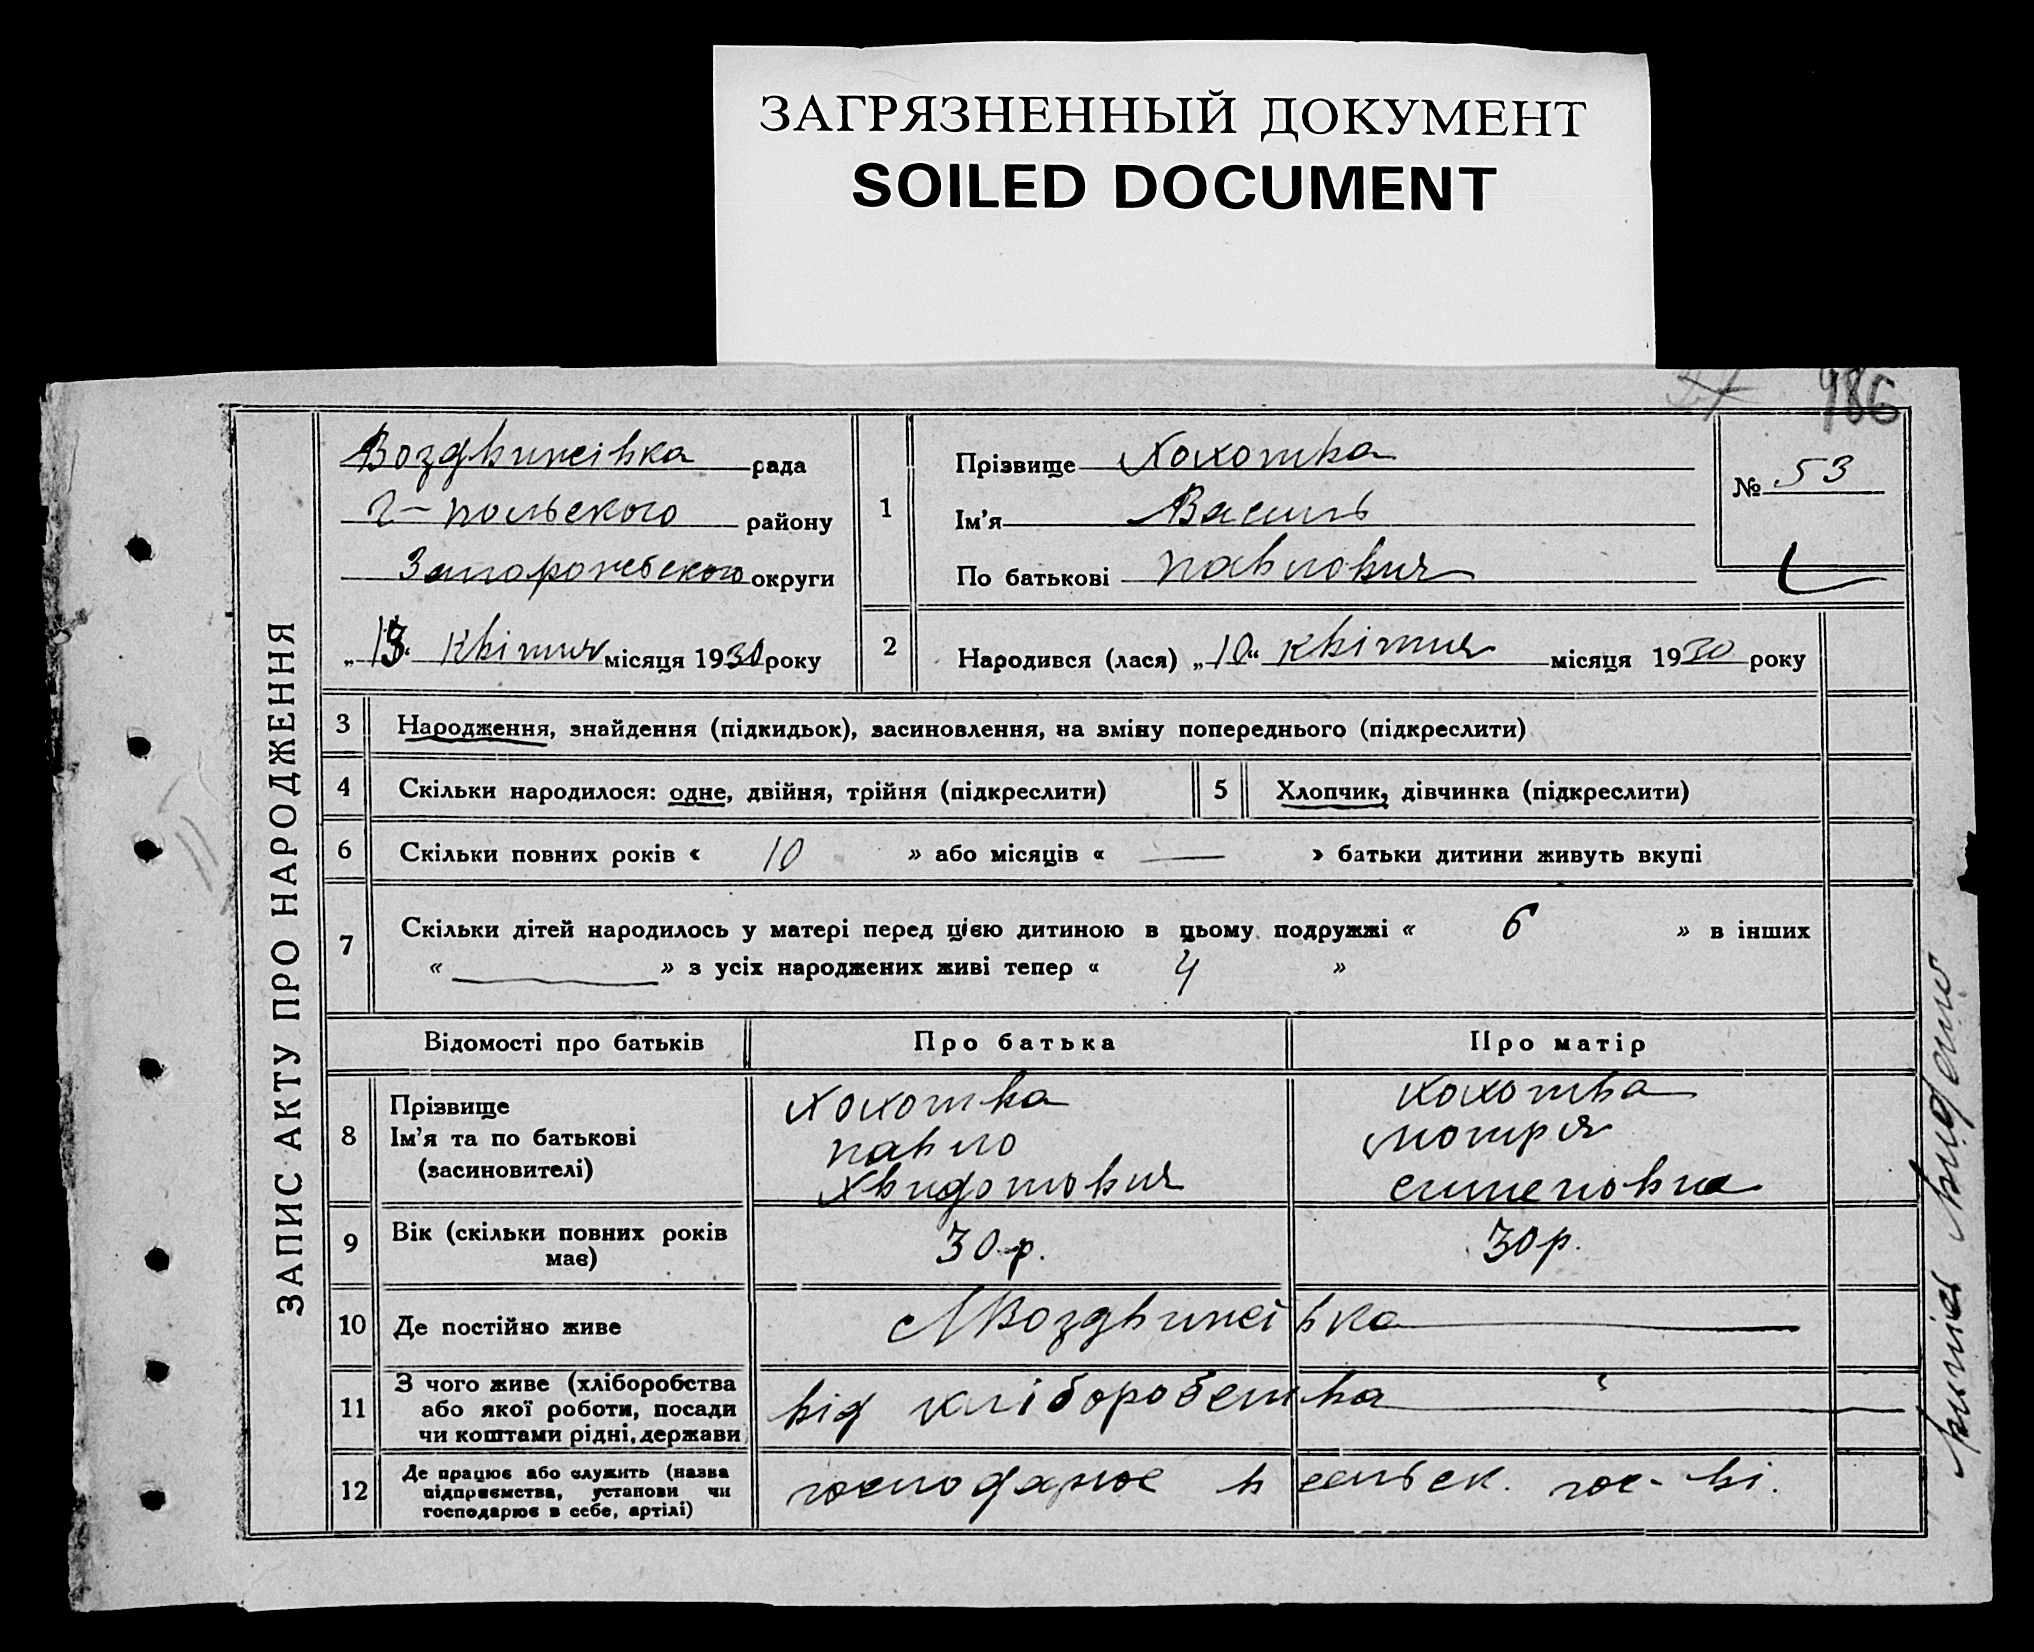 ЗАГРЯЗНЕННЫЙ ДОКУМЕНТ
SOILED DOCUMENT
986
ЗАПИС АКТУ ПРО НАРОДЖЕННЯ
Воздвижівка рада
Г-польского району
Запорожського округи
„13" квітня місяця 1930 року
1
Прізвище Хохотва
Ім'я Василь
По батькові Павлович
№ 53
2
Народився (лася) „10" квітня місяця 1930 року
3 Народження, знайдення (підкидьок), засиновлення, на зміну попереднього (підкреслити)
4 Скільки народилося: одне, двійня, трійня (підкреслити)
5 Хлопчик, дівчинка (підкреслити)
6 Скільки повних років « 10 » або місяців « — » батьки дитини живуть вкупі
7 Скільки дітей народилось у матері перед цією дитиною в цьому подружжі « 6 » в інших
« — » з усіх народжених живі тепер « 4 »
Відомості про батьків
Про батька
Про матір
8 Прізвище
Ім'я та по батькові
(засиновителі)
Хохотва
Павло
Хвидотович
Хохотва
Мотря
Семеновна
9 Вік (скільки повних років
має)
30 р.
30 р.
10 Де постійно живе
Воздвижівка
11 З чого живе (хліборобства
або якої роботи, посади
чи коштами рідні, держави
від хліборобства
12 Де працює або служить (назва
підприємства, установи чи
господарює в себе, артілі)
господарює в сельск. гос-ві.